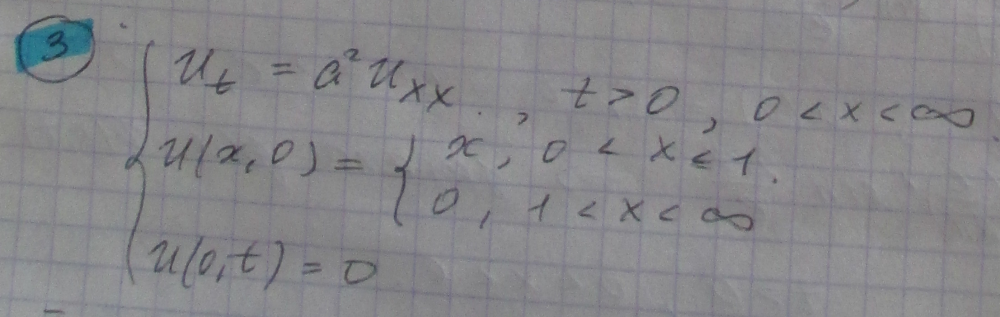 3
u_t = a²u_xx, t > 0, 0 < x < ∞
u(x,0) = { x, 0 < x < 1.
0, 1 < x < ∞
u(0,t) = 0